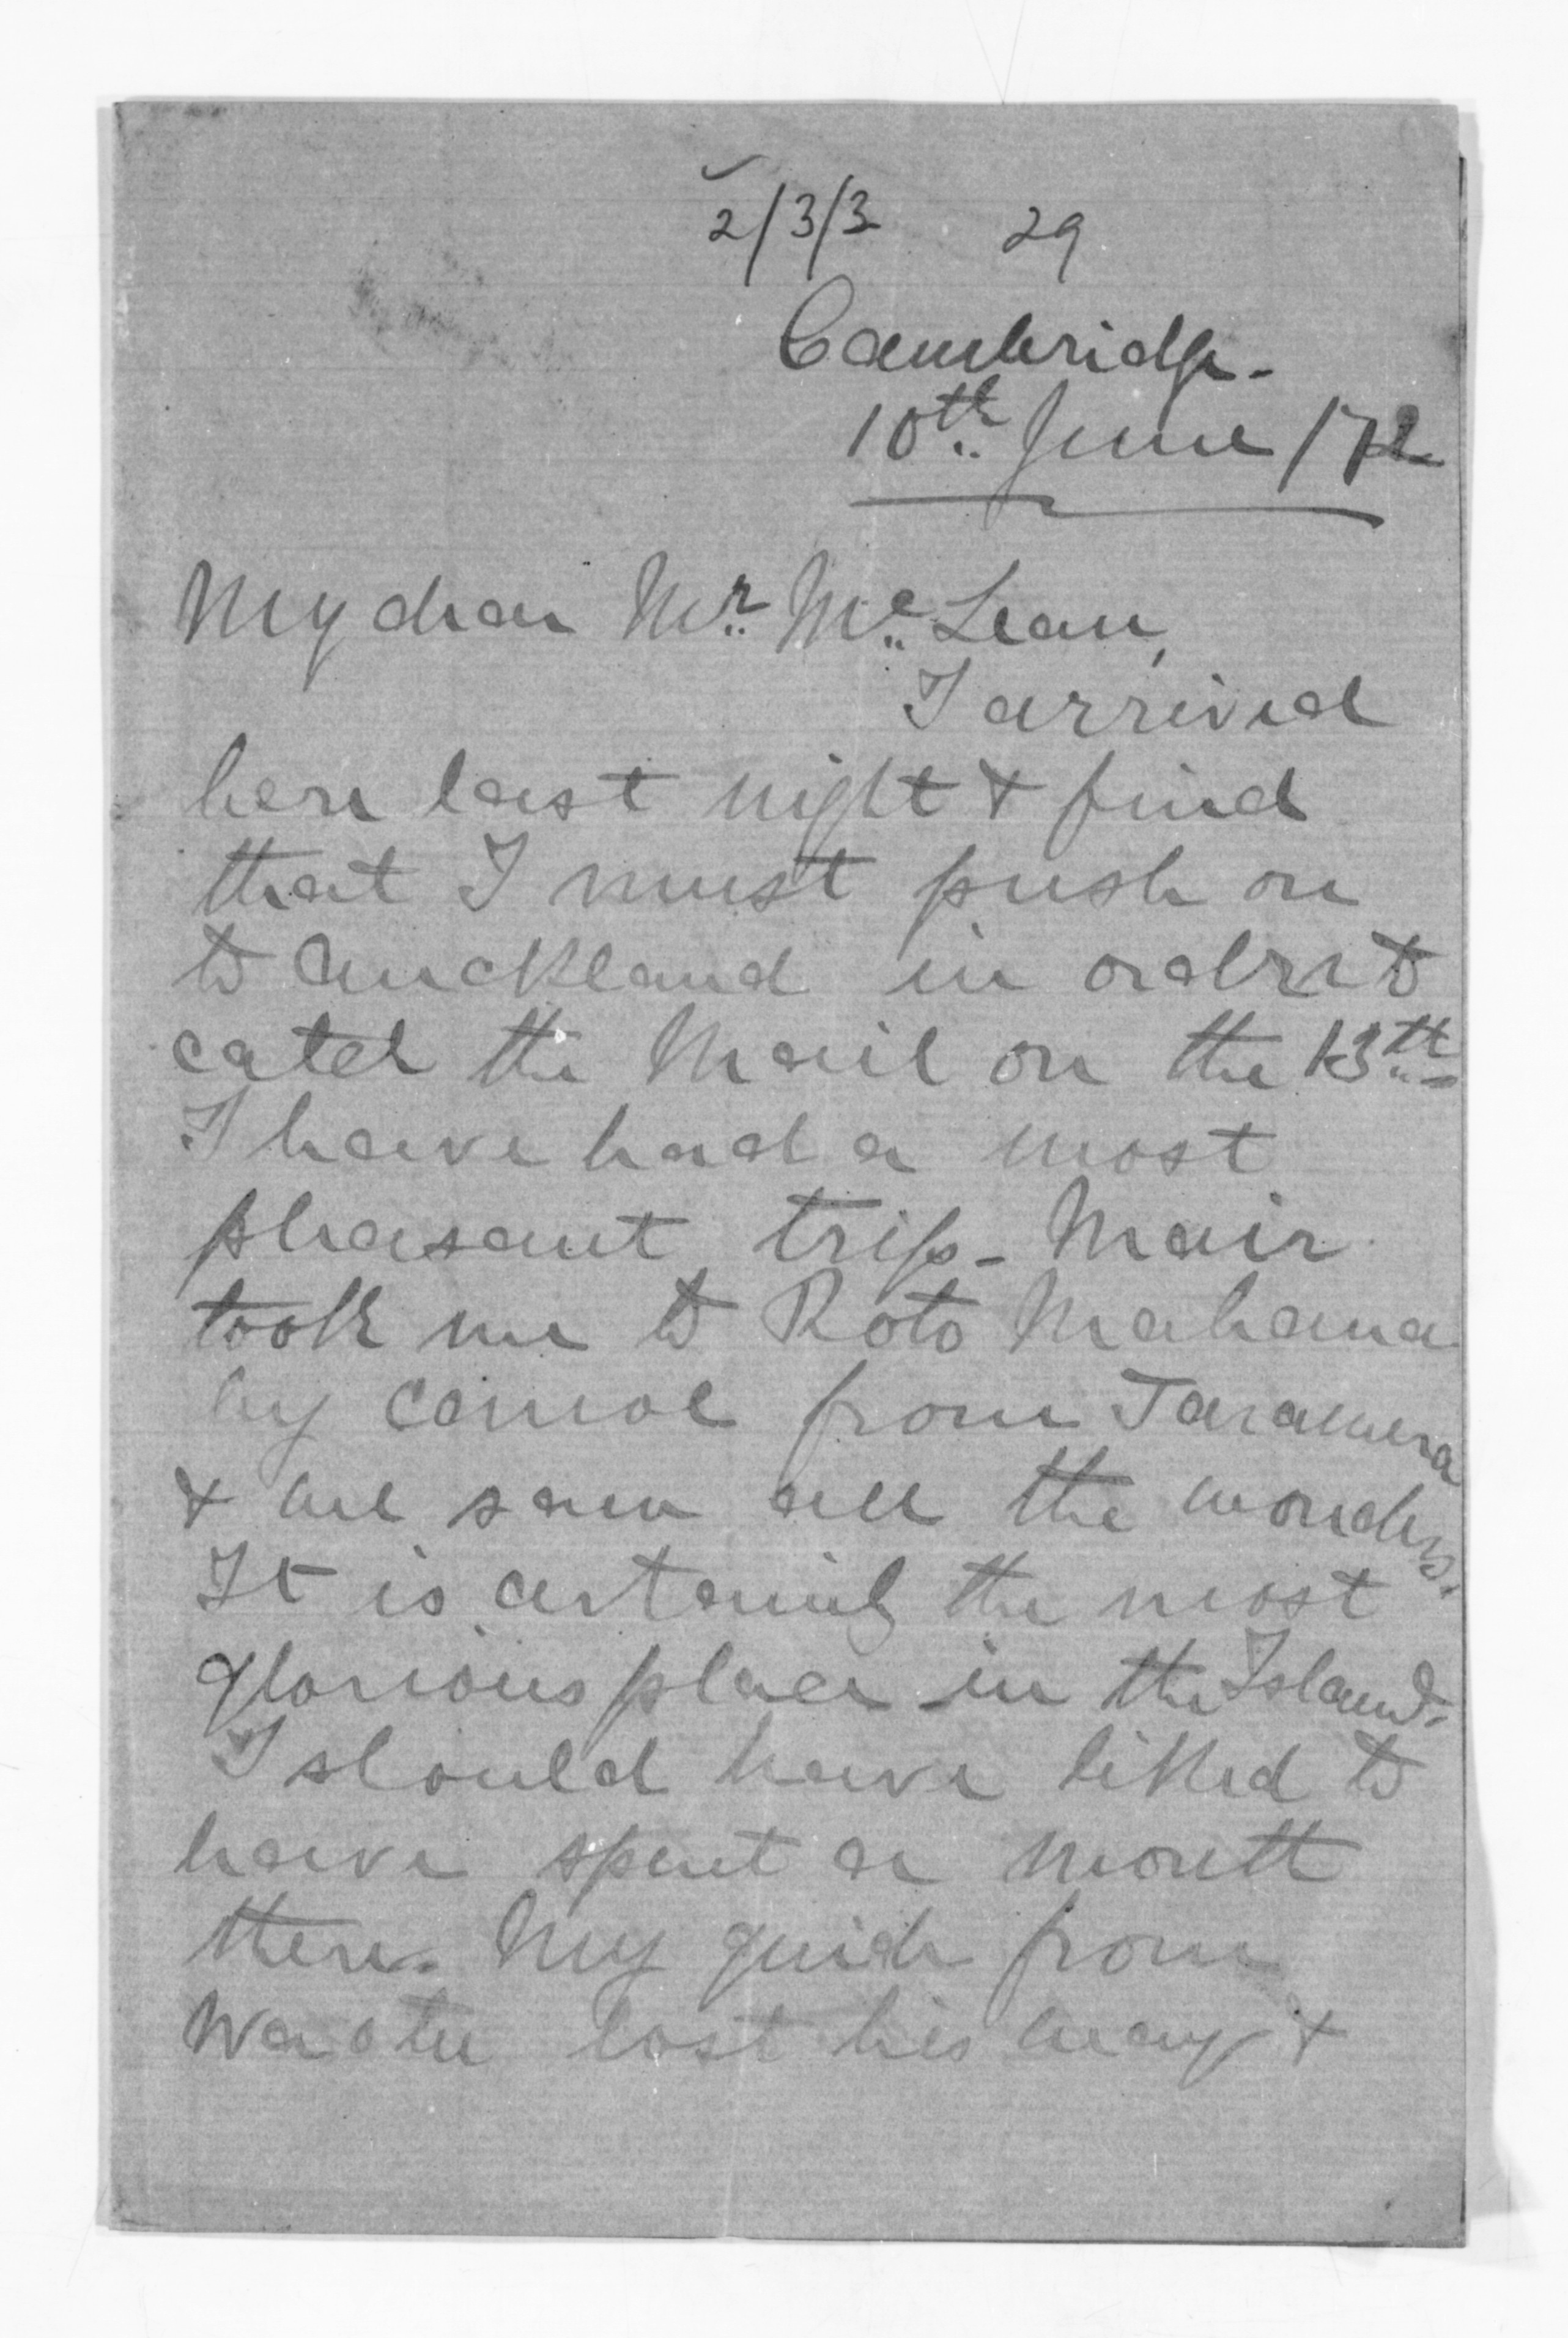 2/3/3 29
Cambridge -
10th June /72
My dear Mr. Mc. Lean,
I arrived
here last night & find
that I must push on
to Auckland in order to
catch the Mail on the 13th -
I have had a most
pleasant trip - Mair
took me to Roto Mahana
by canoe from Tarawera
& we saw all the wonders.
It is certainly the most
glorious place in the Island.
I should have liked to
have spent a month
there. My guide from
Waotu lost his way &